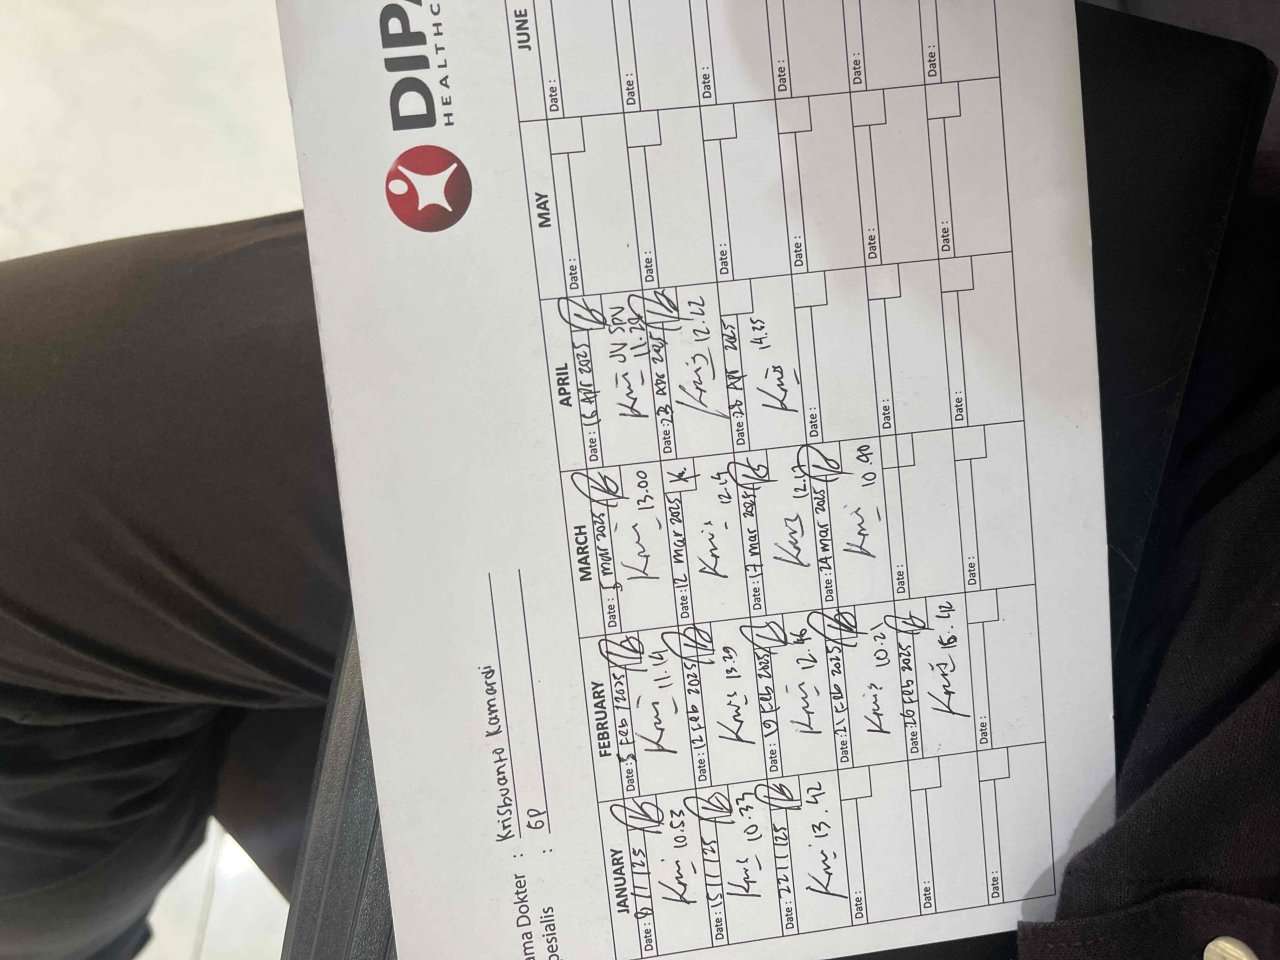 DIPA
HEALTHC
ama Dokter : Krisbuanto Kamardi
pesialis : GP
JANUARY FEBRUARY MARCH APRIL MAY JUNE
Date: 8/1/25 Date: 5 Feb 2025 Date: 5 mar 2025 Date: 16 Apr 2025 Date: Date:
10.53 11.14 13.00 JV SPV 11.28
Date: 15/1/25 Date: 12 Feb 2025 Date: 12 mar 2025 Date: 23 Apr 2025 Date: Date:
10.33 13.29 12.14 12.22
Date: 22/1/25 Date: 19 Feb 2025 Date: 17 mar 2025 Date: 28 Apr 2025 Date: Date:
13.42 12.46 14.25
Date: Date: 21 Feb 2025 Date: 24 mar 2025 Date: Date: Date:
10.21 10.40
Date: Date: 26 Feb 2025 Date: Date: Date: Date:
15.42
Date: Date: Date: Date: Date: Date: